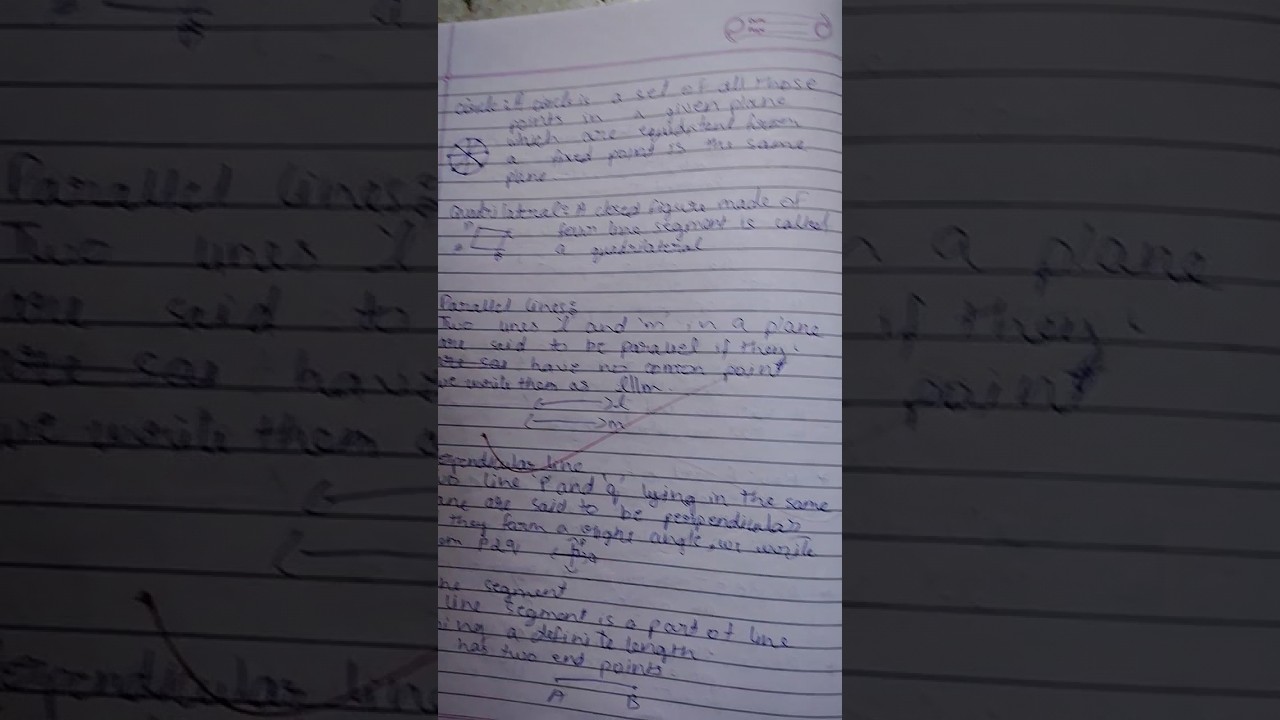 circle:- A circle is a set of all those
points in a given plane
which are equidistent from
a fixed point is the same
plane
Quadrilateral:- A closed figure made of
four line segment is called
a quadrilateral
Parallel lines
Two lines l and 'm' in a plane
are said to be parallel if they
have no common point
we write them as l||m
l
m
ependicular line
line 'P' and 'q' lying in the same
ane are said to be perpendicular
they form a angle we write
P
ne segment
line segment is a part of line
ing a definite length.
has two end points.
A B